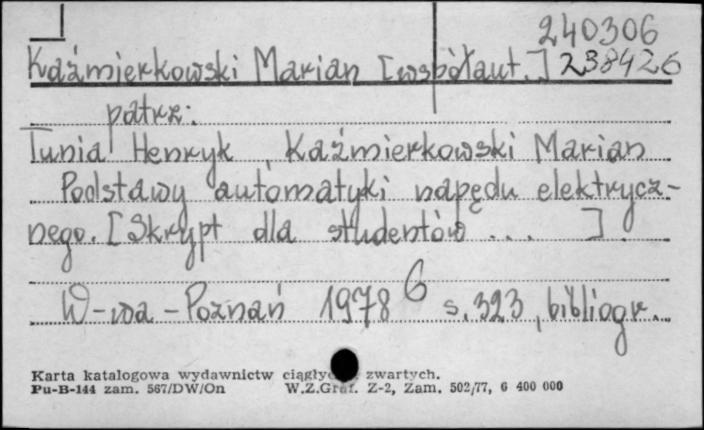 240306
Kaźmierkowski Marian [współaut.] 238426
patrz:
Tunia Henryk, Kaźmierkowski Marian
Podstawy automatyki napędu elektrycz-
nego. [Skrypt dla studentów ... ]
6
W-wa - Poznań 1978 s. 323, bibliogr.
Karta katalogowa wydawnictw zwartych.
Pu-B-144 zam. 567/DW/On W.Z.Graf. Z-2, Zam. 502/77, 6 400 000